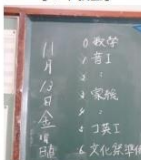 11月13日金曜日
0 数学
1 音I
2
3 家総
4
5 コ英I
6 文化祭準備